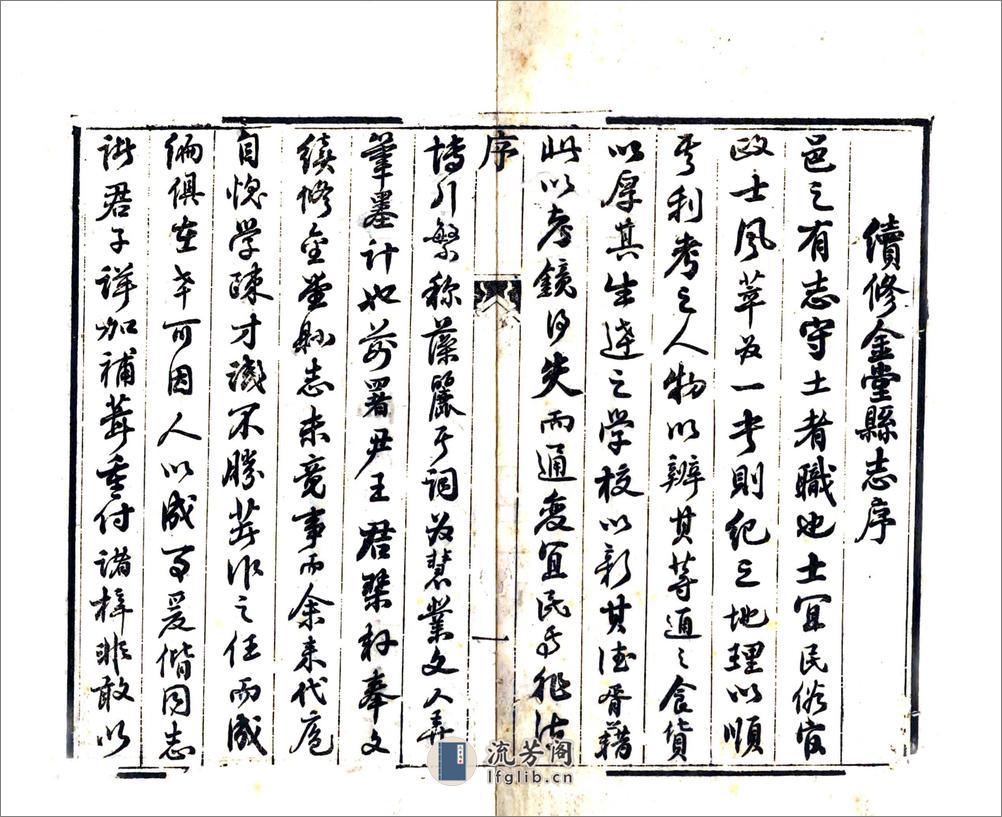 續修金堂縣志序
邑之有志守土者職也土宜民俗官
政士風萃為一書則紀之地理以順
其利考之人物以辨其等通之食貨
以厚其生達之學校以新其德胥藉
此以考鏡得失而通變宜民焉非沾
序
一
博引繁称藻麗于詞為慧業文人弄
筆墨計也前署尹王君琴材奉文
續修金堂縣志未竟事而余来代庖
自愧學疎才識不勝著作之任而成
编俱在本可因人以成事爰偕同志
諸君子詳加補葺重付諸梓非敢以
流芳阁
lfglib.cn